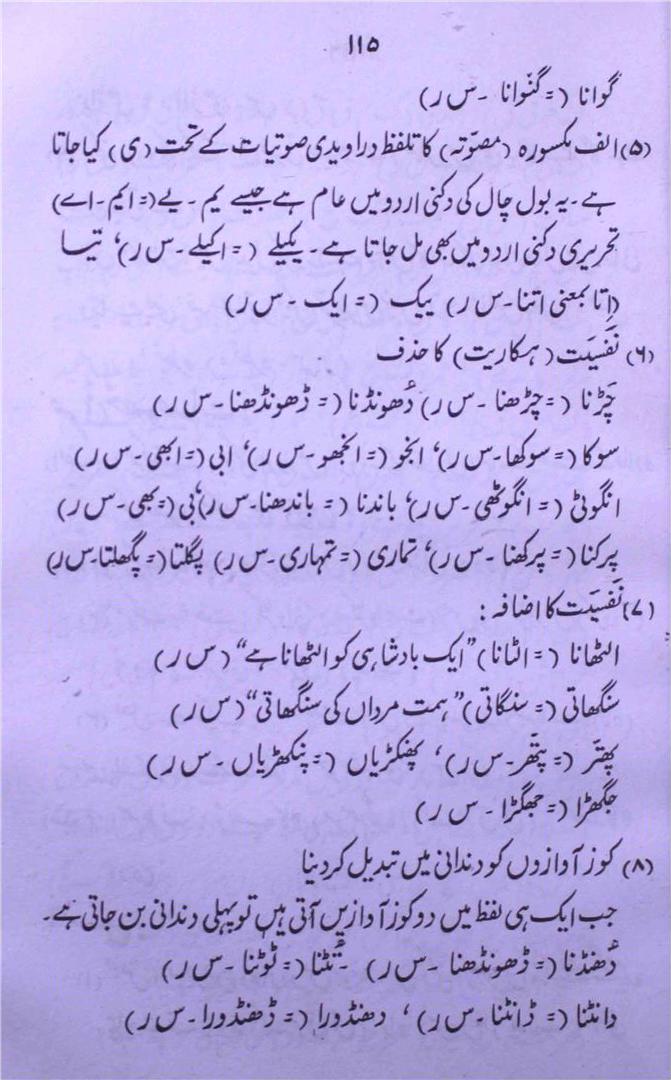 ۱۱۵
گوانا (= گنوانا ۔ س ر)
(۵) الف مکسورہ (مصوّتہ) کا تلفظ دراویدی صوتیات کے تحت (ی) کیا جاتا
ہے۔ یہ بول چال کی دکنی اردو میں عام ہے جیسے یم۔ یے (= ایم۔ اے)
تحریری دکنی اردو میں بھی مل جاتا ہے۔ یکیلے (= اکیلے۔ س ر)، تیسا
(اِتا بمعنی اتنا۔ س ر) ییک (= ایک ۔ س ر)
(۶) نَفَسیَت (ہکاریت) کا حذف
چَڑنا (= چڑھنا ۔ س ر) دُھونڈنا (= ڈھونڈھنا ۔ س ر)
سوکا (= سوکھا۔ س ر)، انجو (= انجھو۔ س ر)، ابی (= ابھی۔ س ر)
انگوٹی (= انگوٹھی ۔ س ر)، باندنا (= باندھنا۔ س ر)، بی (= بھی۔ س ر)
پرکنا (= پرکھنا ۔ س ر)، تماری (= تمہاری۔ س ر) پگلتا (= پگھلتا۔ س ر)
(۷) نَفَسیَت کا اضافہ :
الٹھانا (= الٹانا) ”ایک بادشاہی کو الٹھانا ہے“ (س ر)
سنگھاتی (= سنگاتی) ”ہمت مرداں کی سنگھاتی“ (س ر)
پھتّر (= پتّھر۔ س ر)، پھنکڑیاں (= پنکھڑیاں ۔ س ر)
جگھڑا (= جھگڑا ۔ س ر)
(۸) کوز آوازوں کو دندانی میں تبدیل کر دینا
جب ایک ہی لفظ میں دو کوز آوازیں آتی ہیں تو پہلی دندانی بن جاتی ہے۔
دُھنڈنا (= ڈھونڈھنا ۔ س ر) ۔ تُنٹنا (= ٹوٹنا ۔ س ر)
دانٹنا (= ڈانٹنا ۔ س ر)، دھنڈورا (= ڈھنڈورا۔ س ر)